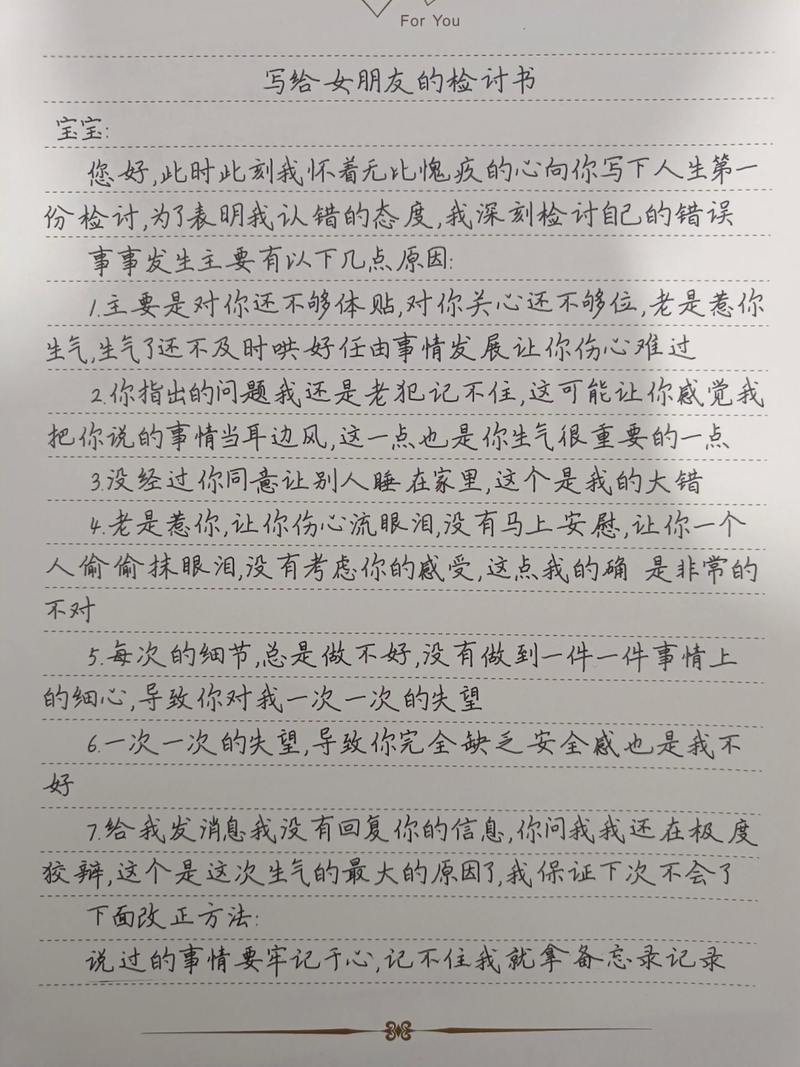 For You
写给女朋友的检讨书
宝宝:
您好,此时此刻我怀着无比愧疚的心向你写下人生第一
份检讨,为了表明我认错的态度,我深刻检讨自己的错误
事事发生主要有以下几点原因:
1.主要是对你还不够体贴,对你关心还不够位,老是惹你
生气,生气了还不及时哄好任由事情发展让你伤心难过
2.你指出的问题我还是老犯记不住,这可能让你感觉我
把你说的事情当耳边风,这一点也是你生气很重要的一点
3.没经过你同意让别人睡在家里,这个是我的大错
4.老是惹你,让你伤心流眼泪,没有马上安慰,让你一个
人偷偷抹眼泪,没有考虑你的感受,这点我的确 是非常的
不对
5.每次的细节,总是做不好,没有做到一件一件事情上
的细心,导致你对我一次一次的失望
6.一次一次的失望,导致你完全缺乏安全感也是我不
好
7.给我发消息我没有回复你的信息,你问我我还在极度
狡辩,这个是这次生气的最大的原因了,我保证下次不会了
下面改正方法:
说过的事情要牢记于心,记不住我就拿备忘录记录